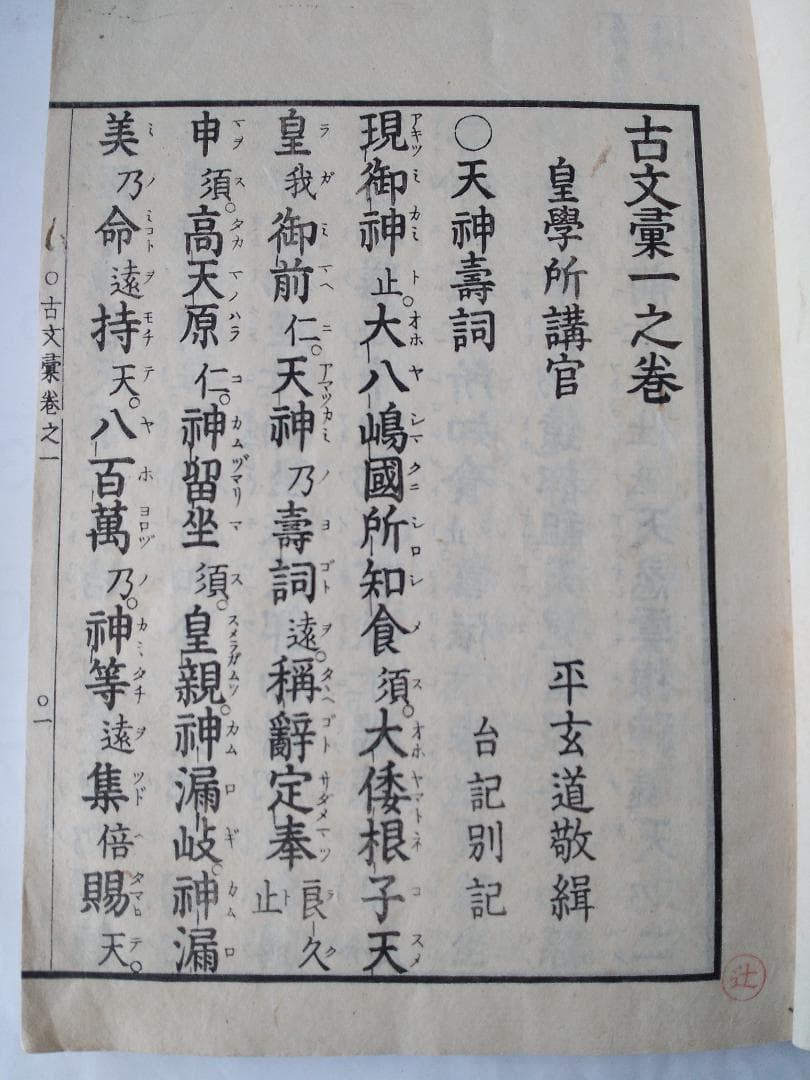 古文彙一之巻
皇學所講官　平玄道敬緝
〇天神壽詞　台記別記
現御神止。大八嶋國所知食須。大倭根子天
皇我御前仁。天神乃壽詞遠。稱辭定奉良久止
申須。高天原仁。神留坐須。皇親。神漏岐。神漏
美乃命遠持天。八百萬乃。神等遠集倍賜天。
〇古文彙巻之一　〇一
辻